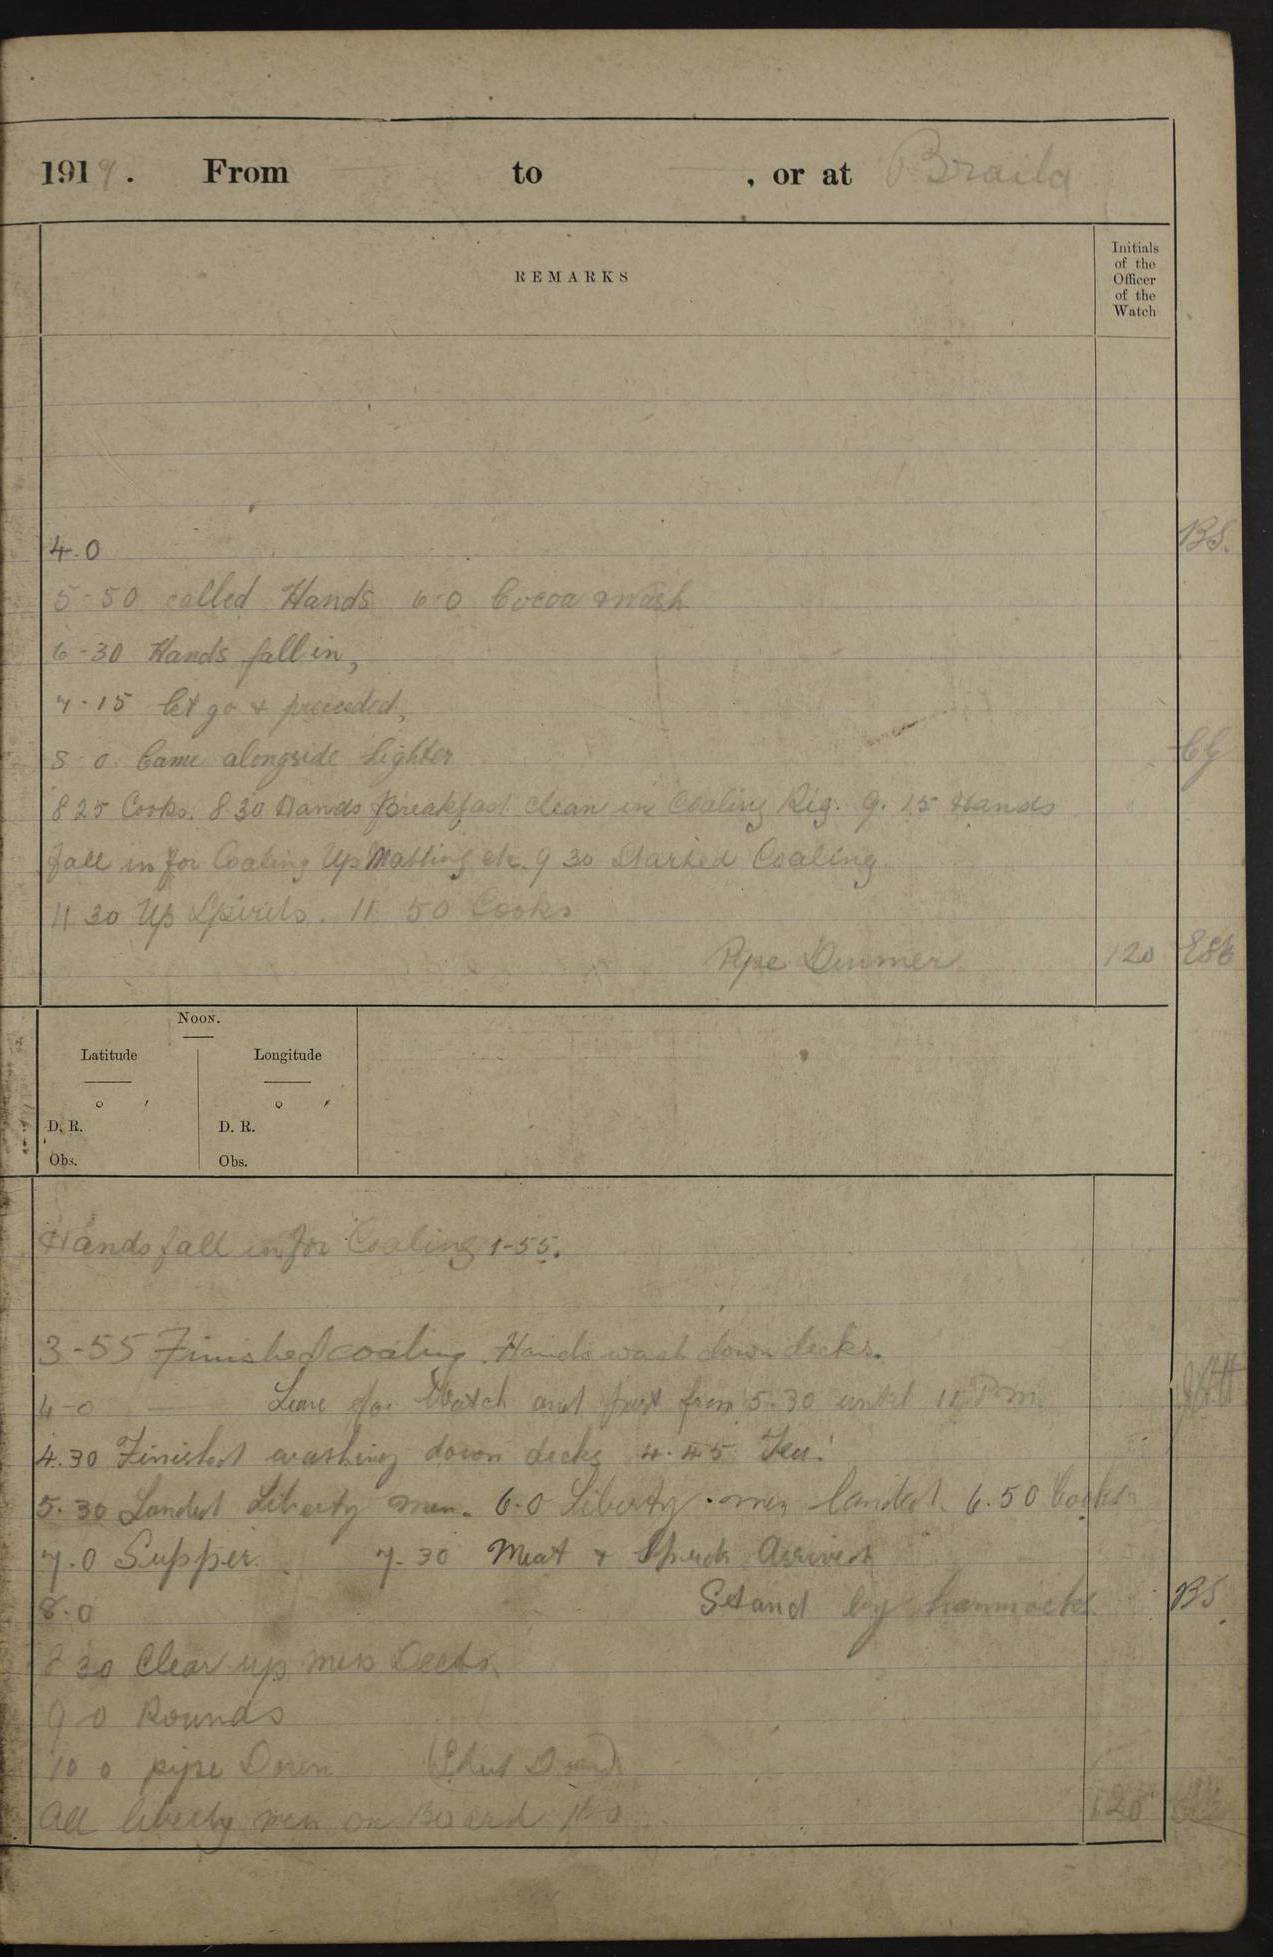 1919. From to , or at Braila
REMARKS
Initials
of the
Officer
of the
Watch
4.0 BS.
5-50 called Hands 6-0 Cocoa & wash
6-30 Hands fall in,
7-15 let go & proceeded,
8 0 Came alongside Lighter CG
8 25 Cooks. 8 30 Hands Breakfast clean in Coaling Rig. 9.15 Hands
fall in for Coaling Up Matting etc. 9 30 Started Coaling
11 30 Up Spirits. 11 50 Cooks
Pipe Dinner 120
Noon.
Latitude Longitude
° ′ ° ′
D. R. D. R.
Obs. Obs.
Hands fall in for Coaling 1-55.
3-55 Finished coaling. Hands wash down decks.
4-0 — Leave for Watch and part from 5.30 until 11 P.m.
4.30 Finished washing down decks 4.45 Tea.
5.30 Landed Liberty men. 6.0 Liberty men landed. 6.50 Cooks
7.0 Supper. 7.30 Meat & Spuds Arrived
8.0 Stand by hammocks. BS.
8 30 Clear up mess Decks
9 0 Rounds
10 0 pipe Down
All liberty men on Board 120